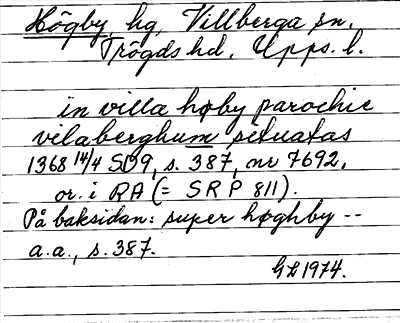 Högby, hg, Villberga sn.
Trögds hd, Upps. l.
in villa høby parochie
velaberghum situatas
1368 14/4 SD9, s. 387, nr 7692,
or. i RA (= SRP 811).
På baksidan: super høghby --
a.a., s. 387.
GL 1974.